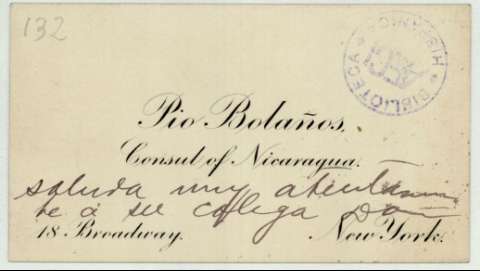 132
BIBLIOTECA HISPANICA
Pio Bolaños,
Consul of Nicaragua.
saluda muy atentamen
te á su colega Don
18 Broadway. New York.